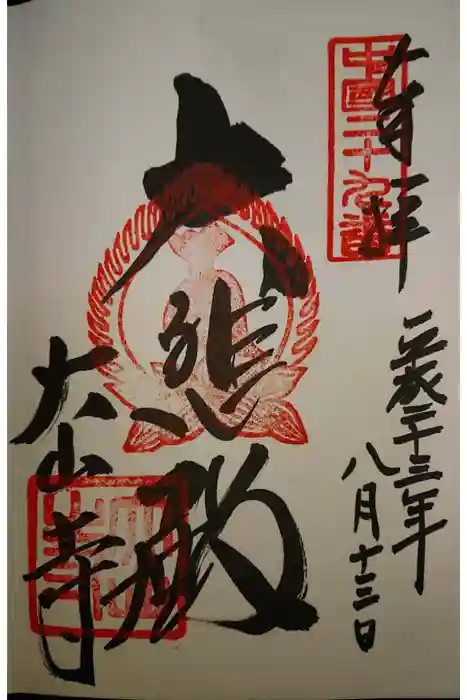 奉拝
中國二十九番
平成二十三年
八月十三日
大悲殿
大山寺